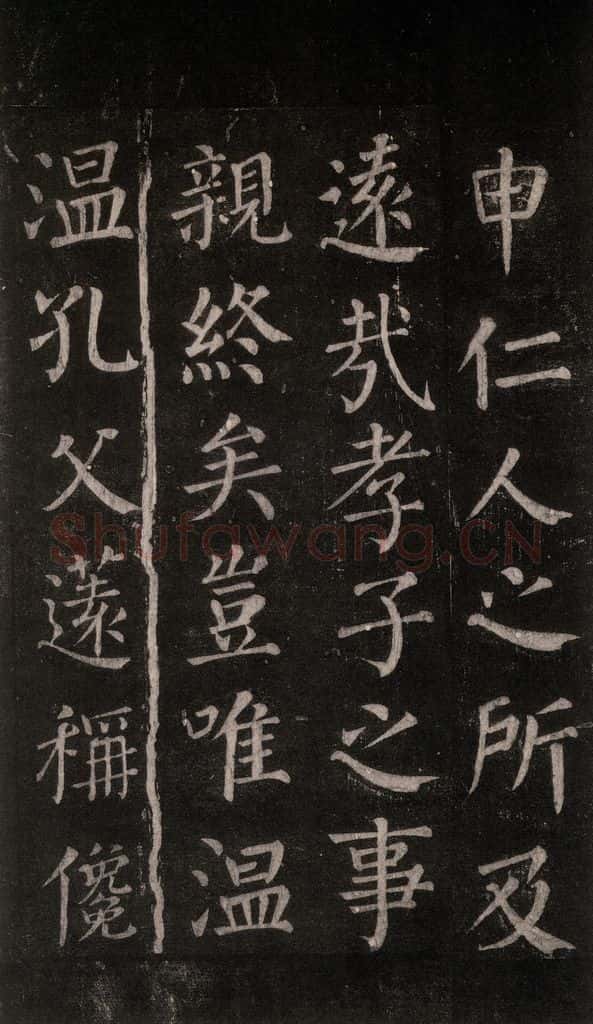 申仁人之所及
遠哉孝子之事
親終矣豈唯溫
溫孔父遠稱儳
Shufawang.CN